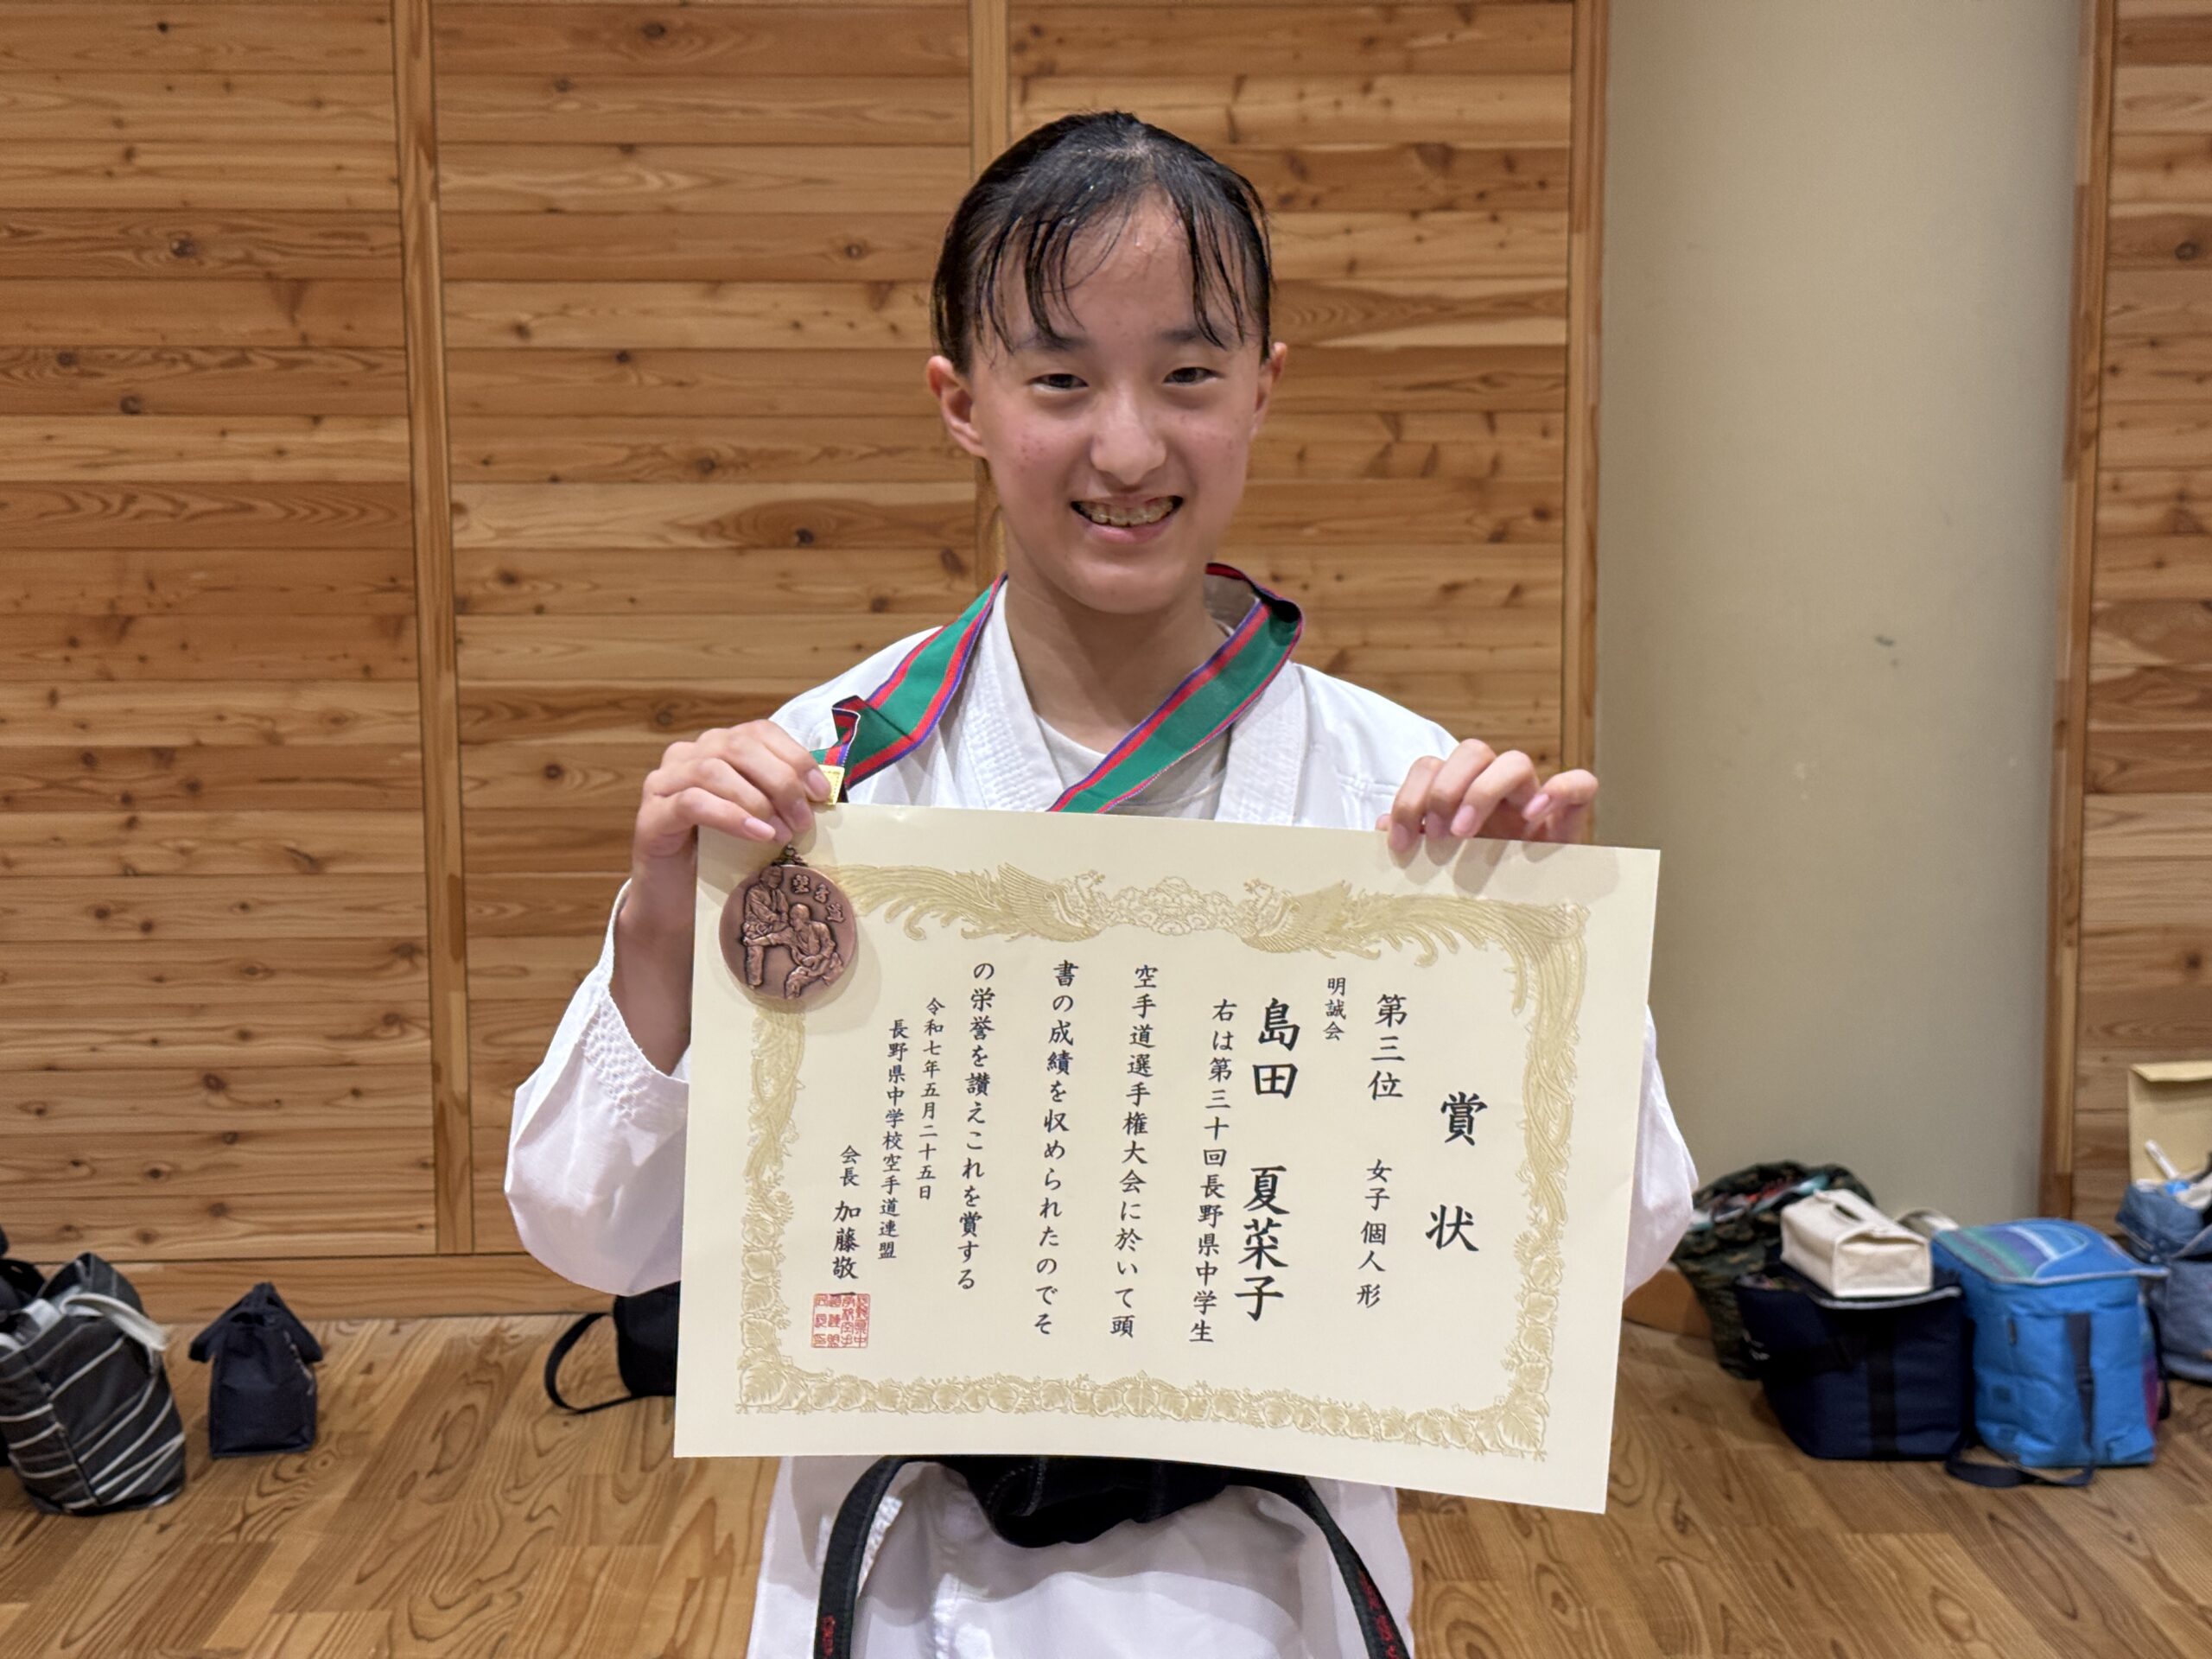 賞状
第三位 女子個人形
明誠会
島田 夏菜子
右は第三十回長野県中学生
空手道選手権大会に於いて頭
書の成績を収められたのでそ
の栄誉を讃えこれを賞する
令和七年五月二十五日
長野県中学校空手道連盟
会長 加藤敬
空手道